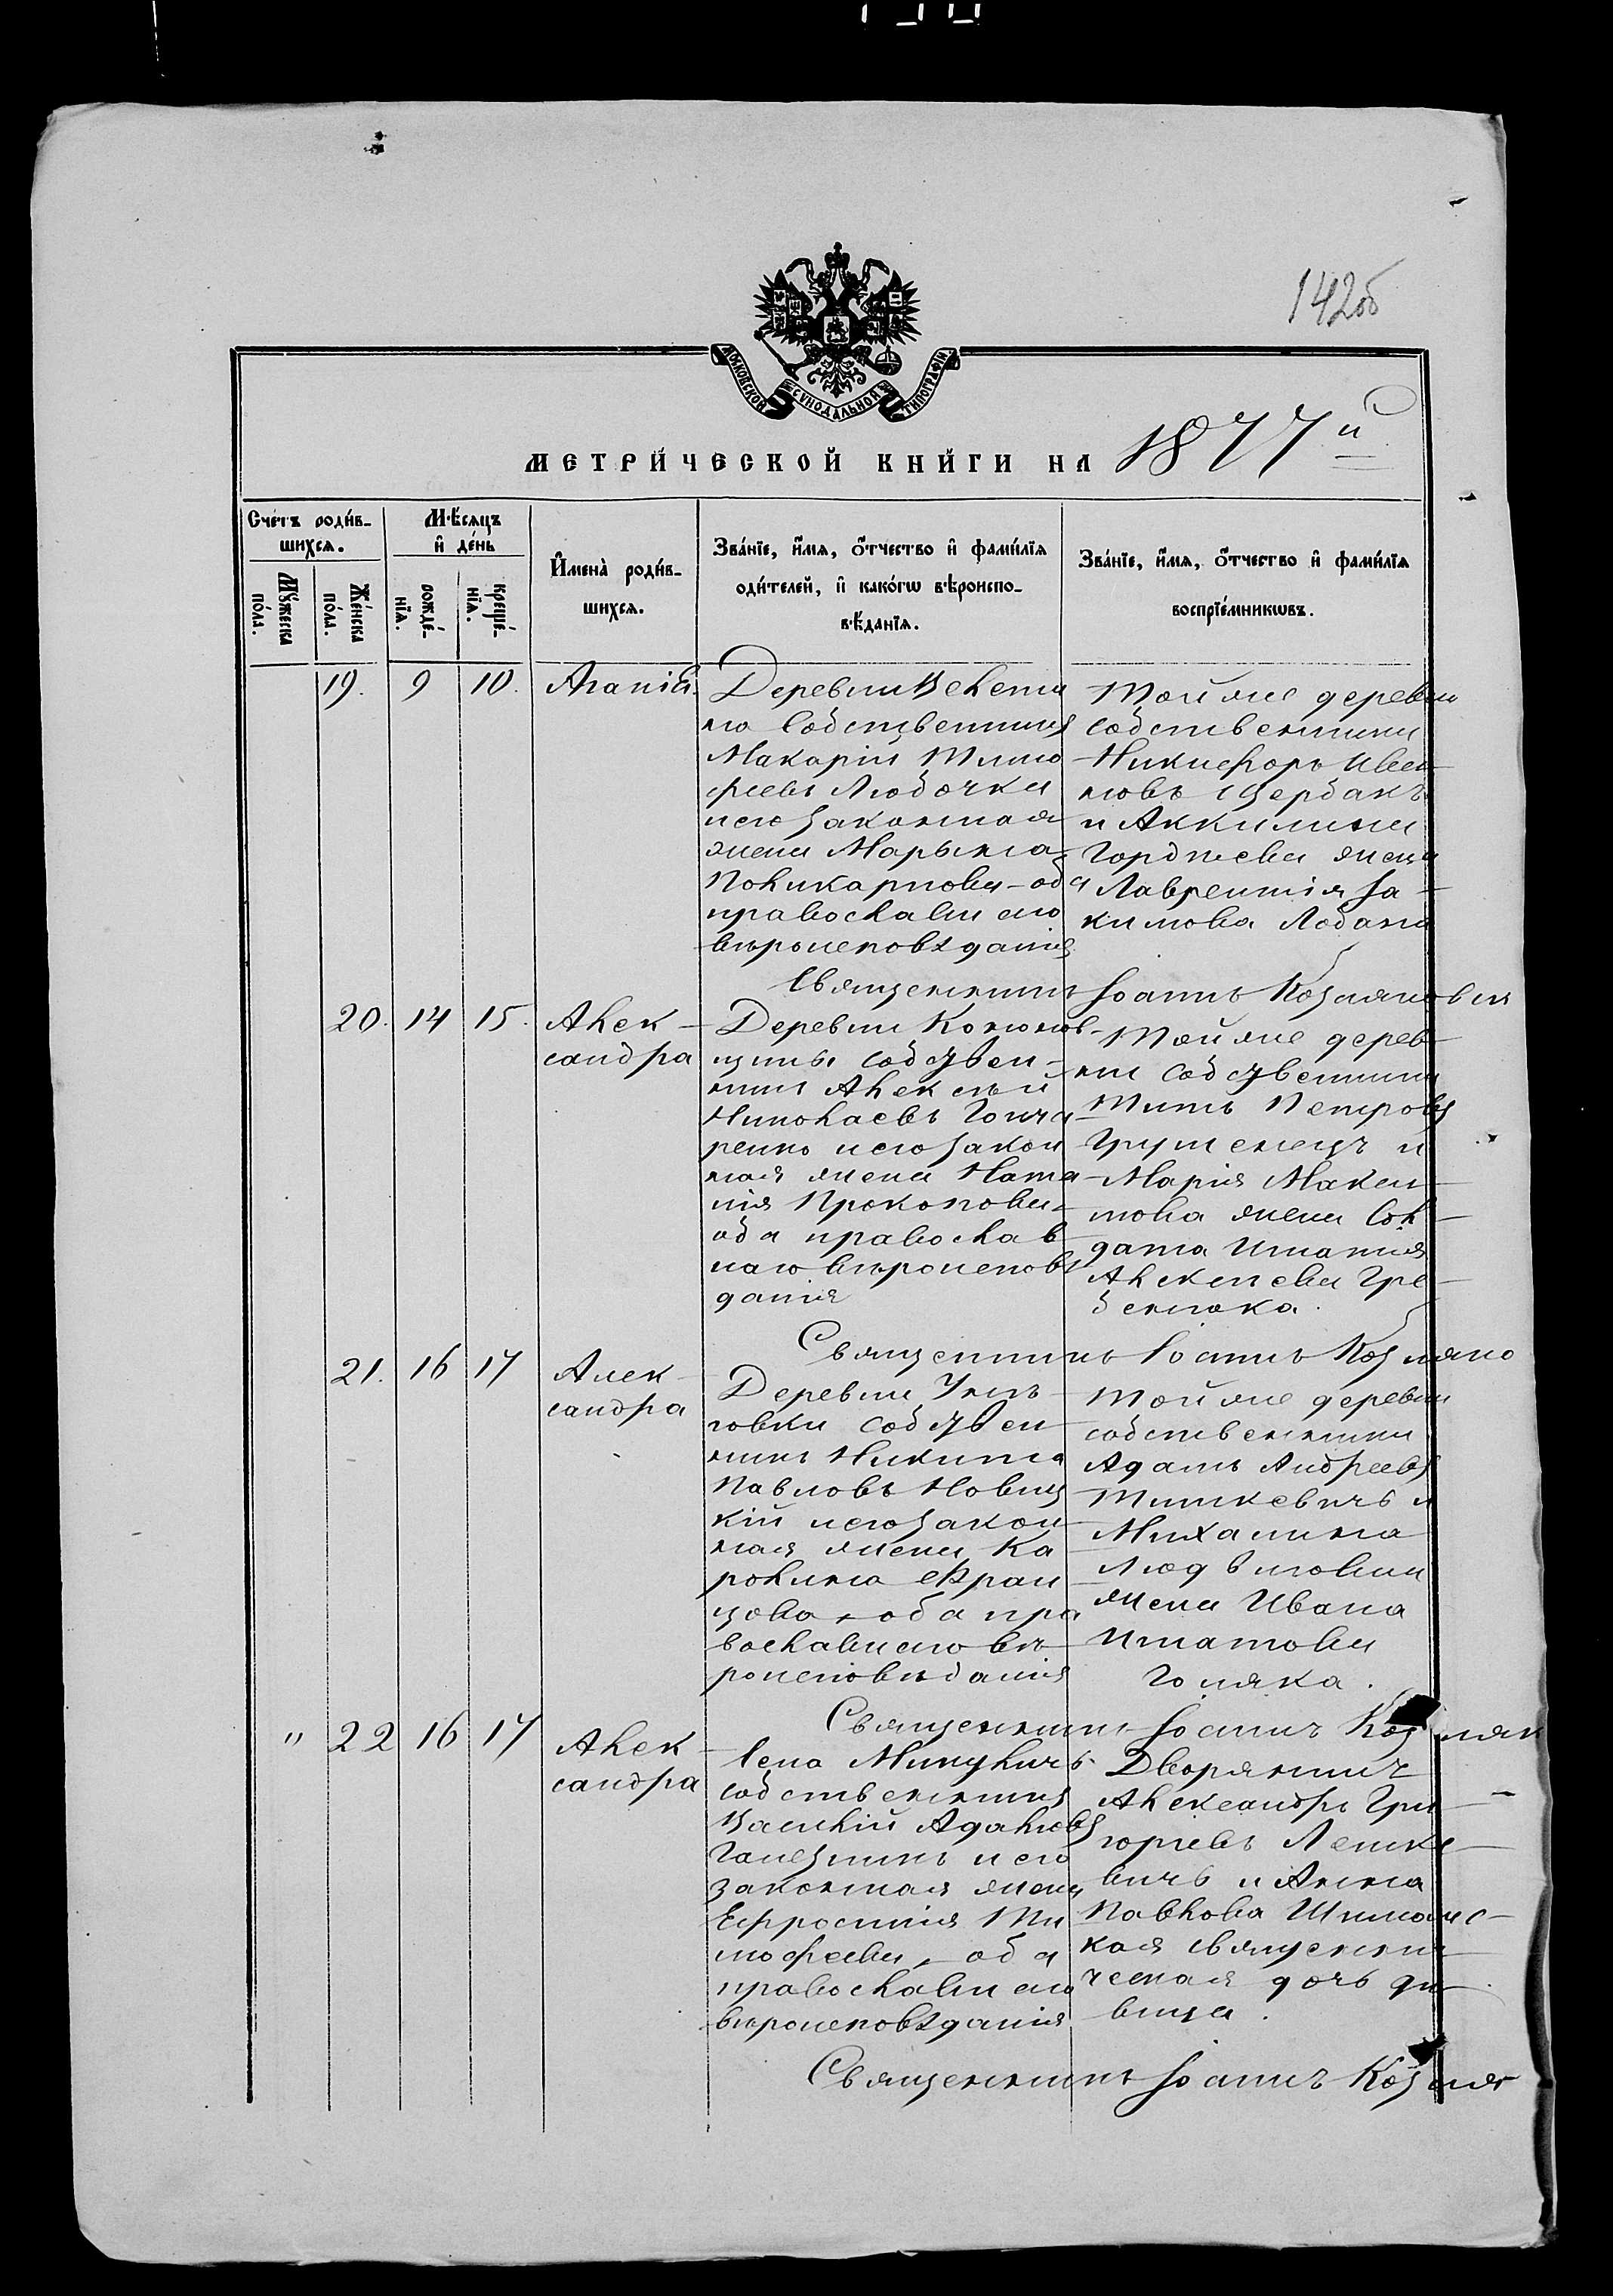 142об
МОСКОВСКОЙ СѴНОДАЛЬНОЙ ТИПОГРАФІИ
МЕТРИ́ЧЕСКОЙ КНИ́ГИ НА 1877й
Сче́тъ роди́в-
шихсѧ.
Мꙋ́жеска
по́ла.
Же́нска
по́ла.
Мѣ́сѧцъ
и҆ де́нь
рожде́-
нїѧ.
креще́-
нїѧ.
И҆мена̀ роди́в-
шихсѧ.
Зва́нїе, и҆́мѧ, ѻ҆́тчество и҆ фами́лїѧ
оди́телей, и҆ како́гѡ вѣ́роиспо-
вѣ́данїѧ.
Зва́нїе, и҆́мѧ, ѻ҆́тчество и҆ фами́лїѧ
воспрїе́мникѡвъ.
19. 9 10.
Деревни
но собственникъ
Макарій Тимо
феевъ Любочка
и его законная
жена Марьяна
Поликарпова - оба
православнаго
вѣроисповѣданія
Той же деревни
собственники
Никифоръ Иван
новъ Щербакъ
и Аккилина
Гордѣева жена
Лаврентія Іа-
кимова Лобана
Священникъ Іоаннъ
20. 14 15.
Алек-
сандра
Деревни
щины собствен-
никъ Алексѣй
Николаевъ Гонча
ренко и его закон
ная жена Ната
лія Прокопова -
оба православ
наго вѣроисповѣ
данія
Той же дерев-
ни собственники
Титъ Петровъ
и
Марія Макси-
мова жена Сол-
дата Игнатія
Алексѣева Гре-
бенюка.
Священникъ Іоаннъ
21. 16 17
Алек-
сандра
Деревни
новки собствен
никъ Никита
Павловъ Новиц
кій и его закон
ная жена Ка
ролина Фран
цова - оба пра
вославнаго вѣ-
роисповѣданія
Той же деревни
собственники
Адамъ Андреевъ
и
Михалина
Людвигова
жена Ивана
Игнатова
Священникъ Іоаннъ
" 22 16 17
Алек-
сандра
Села
собственникъ
Василій
и его
законная жена
Ефросинія Ти
мофеева, - оба
православнаго
вѣроисповѣданія
Дворянинъ
Александръ Гри-
горьевъ
и Анна
Павлова
кая священни-
ческая дочь дѣ-
вица.
Священникъ Іоаннъ